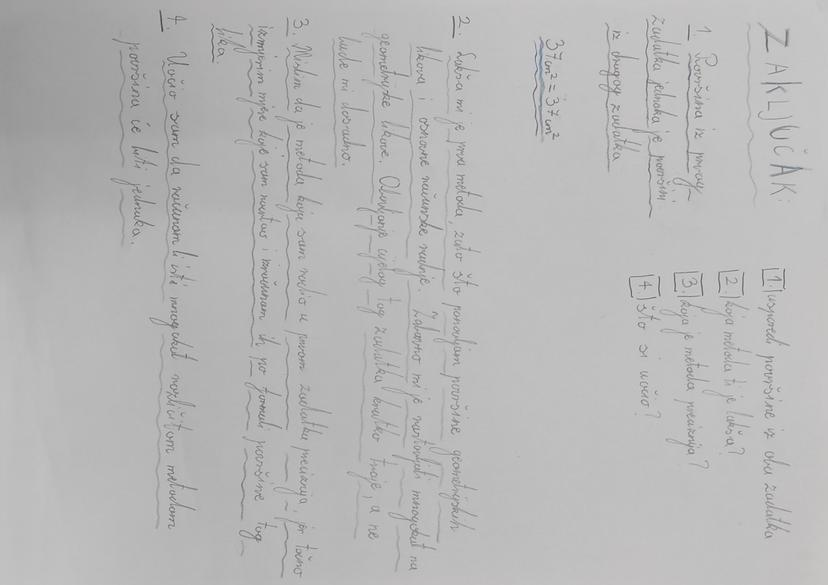 ZAKLJUČAK:
1. usporedi površine iz oba zadatka
2. koja metoda ti je lakša?
3. koja je metoda preciznija?
4. što si uočio?
1. Površina iz prvog
zadatka jednaka je površini
iz drugog zadatka
37cm² = 37cm²
2. Lakša mi je prva metoda, zato što ponavljam površine geometrijskih
likova i osnovne računske radnje. Zabavno mi je rastavljati mnogokut na
geometrijske likove. Obavljanje cijelog tog zadatka kratko traje, a ne
bude mi dosadno.
3. Mislim da je metoda koju sam radio u prvom zadatku preciznija, jer točno
izmjerim mjere koje sam nacrtao i izračunam ih po formuli površine tog
lika.
4. Uočio sam da računam li isti mnogokut različitom metodom
površina će biti jednaka.